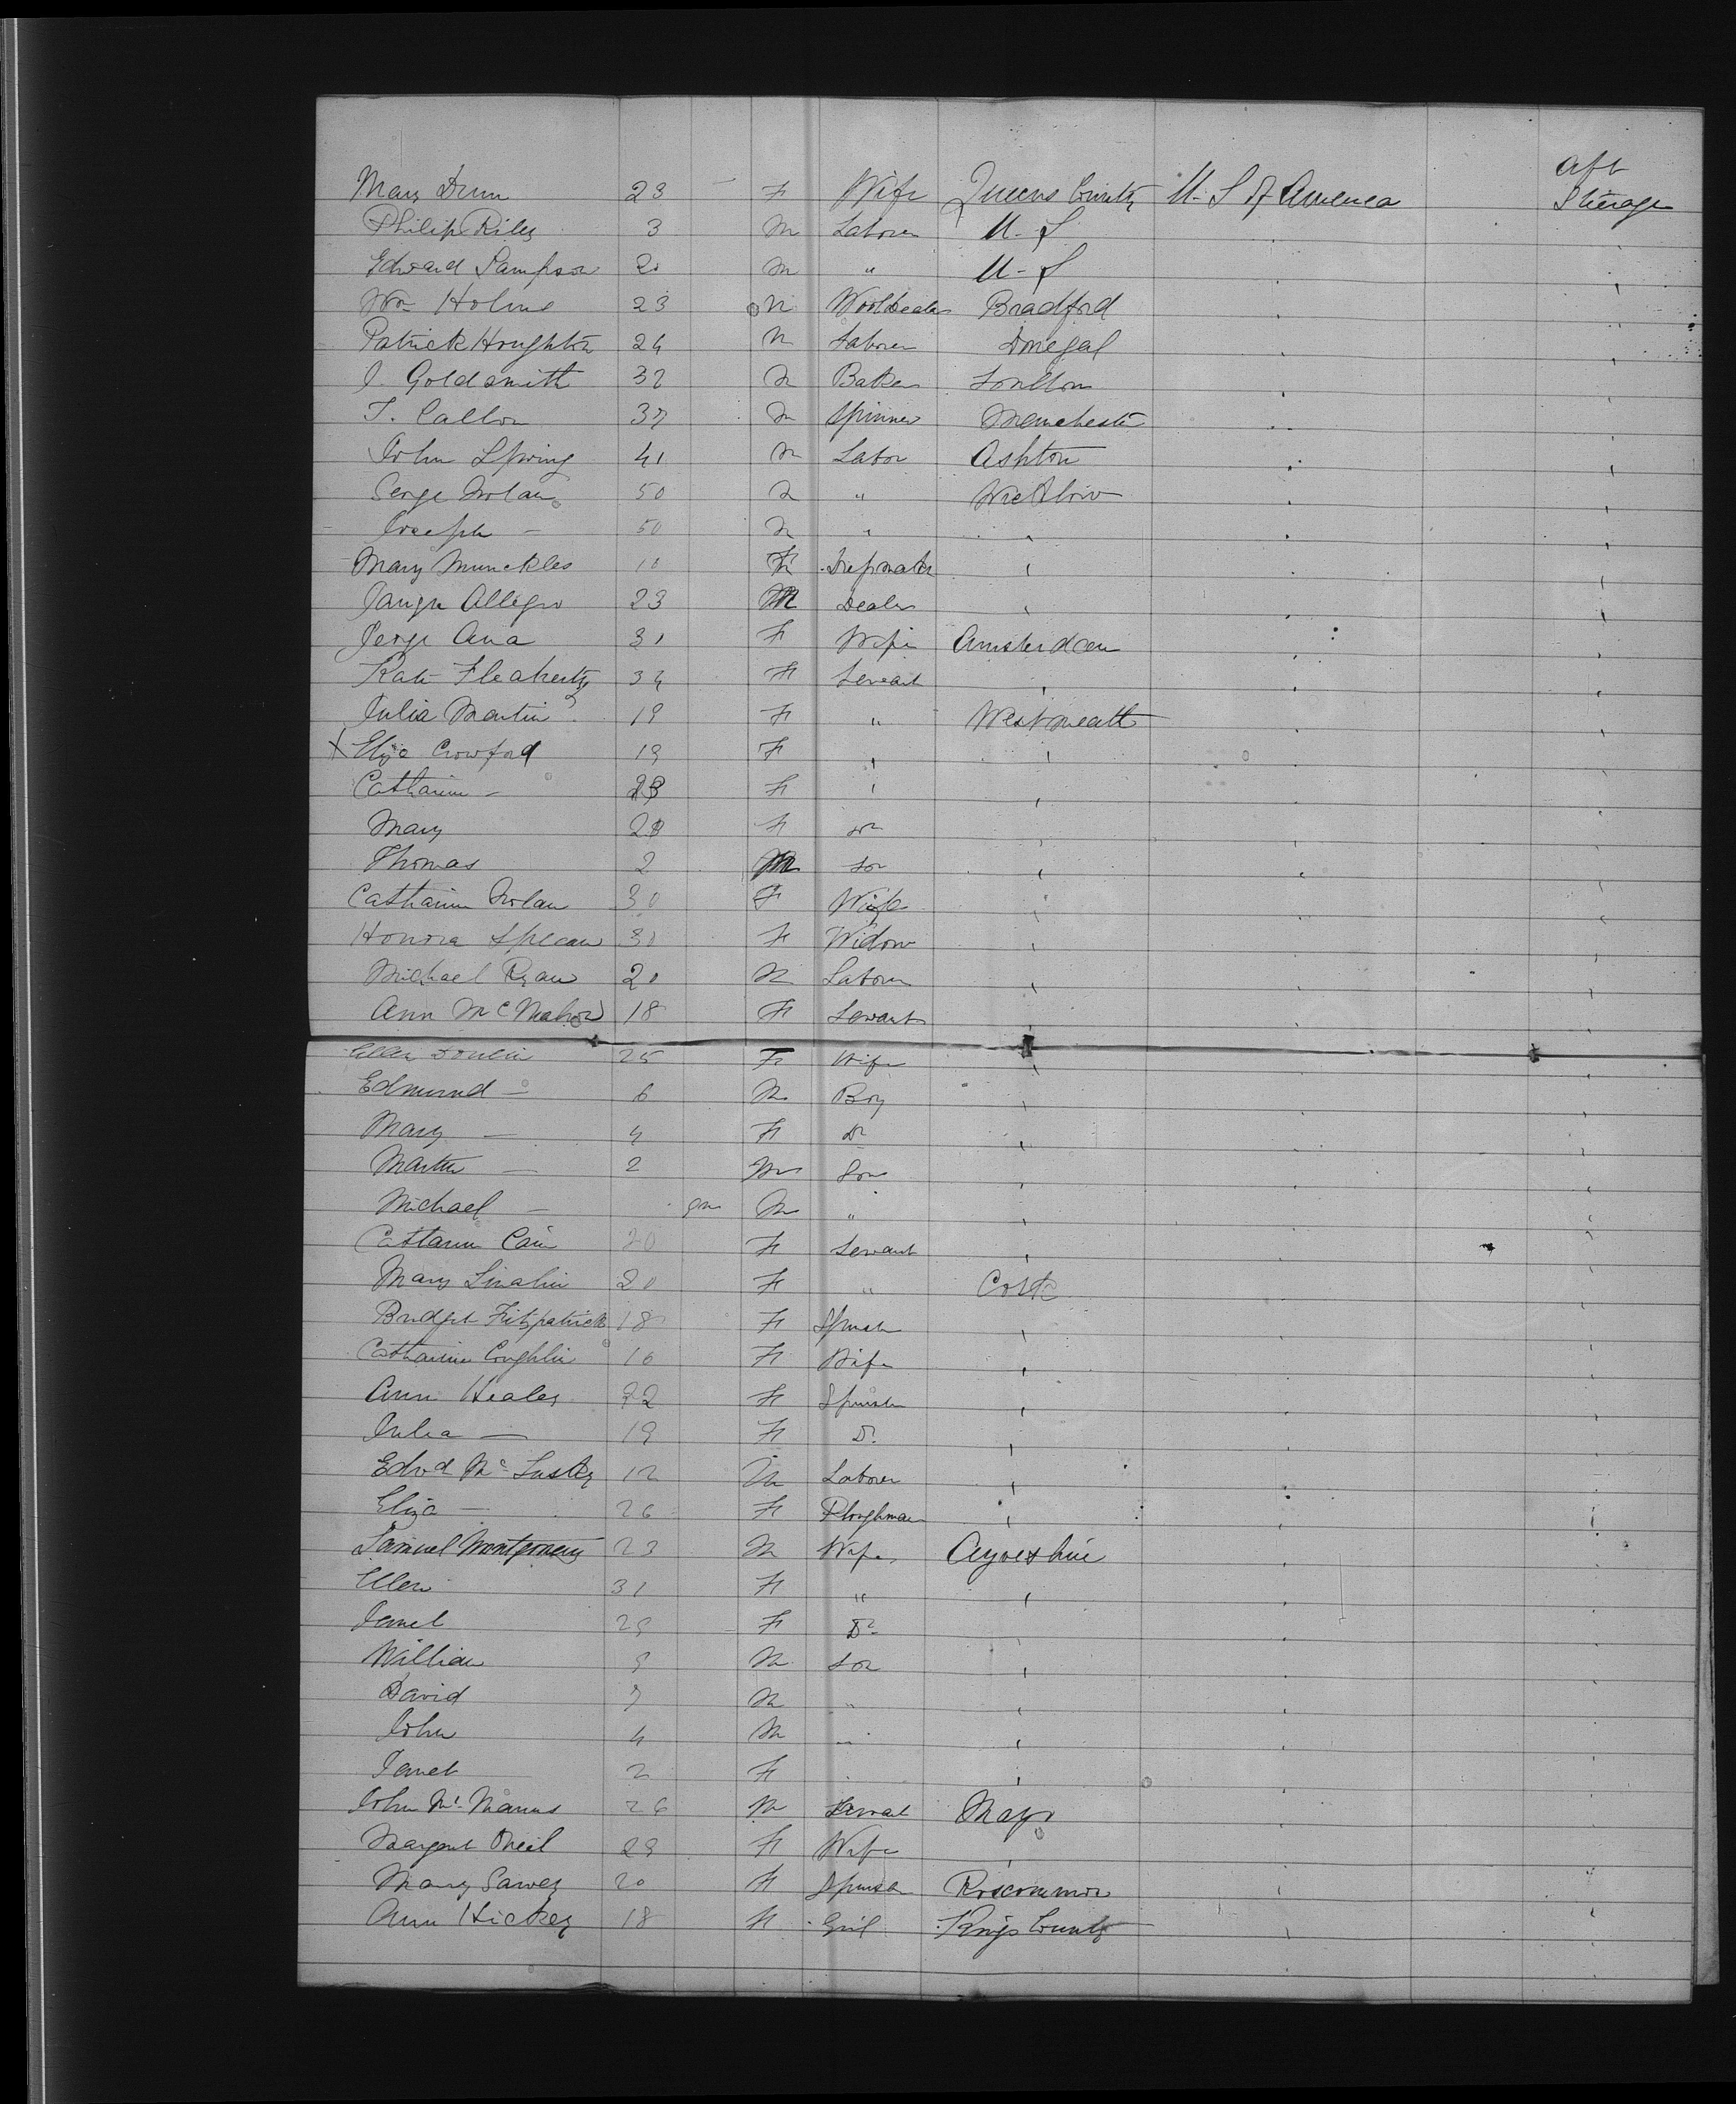 Aft
Mary Dunn 23 — F Wife Queens County U-S of America Sterage
Philip Riley 3 M Laborer U-S
Edward Sampson 20 M " U-S
Wm Holme 23 M Wooldealer Bradford
Patrick Houghton 24 M Laborer Donegal
J. Goldsmith 32 M Baker London
T. Callon 37 M Spinner Manchester
John Spring 41 M Labor Ashton
George Nolan 50 M " Wicklow
Joseph — 50 M " "
Mary Munckles 10 F "
Allegro 23 M Dealer "
Ana 30 F Wife Amsterdam
Kate Fleaherty 34 F Servant "
Julia Martin 19 F " Westmeath
X Eliza Crowford 19 F " "
Catharine — 23 F " "
Mary 20 F "
Thomas 2 M Son "
Catharine Nolan 30 F Wife "
Honora 30 F Widow "
Michael Ryan 20 M Laborer "
Ann McMahon 18 F Servant "
Ellen 25 F Wife "
Edmund — 6 M Boy "
Mary — 4 F Dr "
Martin — 2 M Son "
Michael — M " "
Catharine Cain 20 F Servant "
Mary 20 F " Cork
Bridget Fitzpatrick 18 F Spinster "
Catharine Coughlin 16 F Wife "
Ann Healey 22 F Spinster "
Julia — 19 F Do "
Edwd Mc 12 M Laborer "
Eliza — 26 F Ploughman "
Samuel Montgomery 23 M Wife Ayreshire
Ellen 31 F " "
Janet 29 F Dr "
William 9 M Son "
David 7 M " "
John 4 M " "
Janet 2 F "
John McManus 26 M Mayo
Margaret Oneil 29 F Wife "
Mary 20 F Spinster Roscommon
Ann Hickey 18 F Girl Kings County